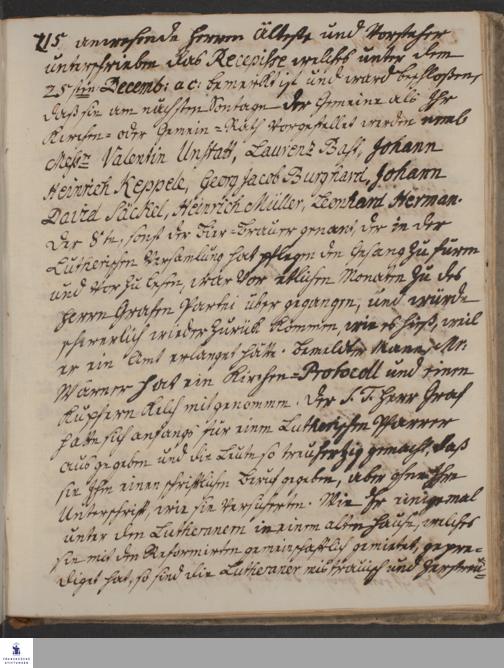 215 anwesende Herren Älteste und Vorsteher
unterschrieben das Recepisse welches unter dem
25sten Decemb: a.c: bemerkt ist und ward beschlossen,
daß sie am nächsten Sontage der Gemeine als Ihr
Kirchen- oder Gemein-Rath vorgestellet werden neml
Messrs Valentin Unstatt, Laurenz Bast, Johann
Heinrich Keppele, Georg Jacob Burghard, Johann
David Säckel, Heinrich Müller, Leonhard Herman.
Der 8te, sonst der Bier-Brauer genant, der in der
Lutherischen Versamlung hat pflegen den Gesang zu füren
und vor zu lesen, war vor etlichen Monaten zu des
Herrn Grafen Partei über gegangen, und würde
schwerlich wieder zurük kommen, wie es hieß, weil
er ein Amt erlanget hätte. Bemeldter Mann, Mr.
Warner hat ein Kirchen-Protocoll und einen
Kupfern Kelch mitgenommen. Der S. T. Herr Graf
hatte sich anfangs für einen Lutherischen Pfarrer
aus gegeben und die Leute so treuherzig gemacht, daß
sie Ihm einen schriftlichen Beruf gegeben, aber ohne Ihre
Unterschrift, wie sie versicherten. Wie Er einigemal
unter den Lutheranern in einem alten Hause, welches
sie mit den Reformirten gemeinschaftlich gemietet, gepre-
diget hat, so sind die Lutheraner mistrauisch und zerstreu-
FRANCKESCHE
STIFTUNGEN